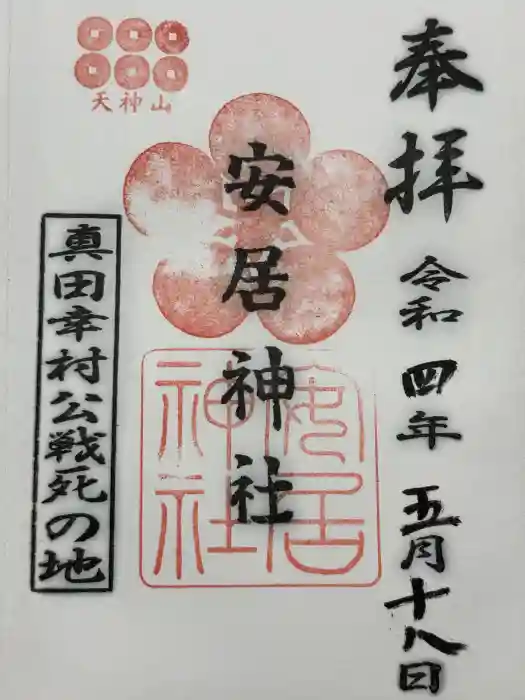 奉拝
令和四年五月十八日
安居神社
安居
神社
天神山
真田幸村公戦死の地